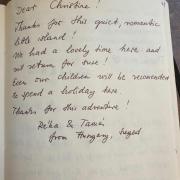 Dear Christine!
Thanks for this quiet, romantic
little island!
We had a lovely time here and
will return for sure!
Even our children will be recomended
to spend a holiday here.
Thanks for this adventure!
Réka & Tamás
from Hungary, Szeged